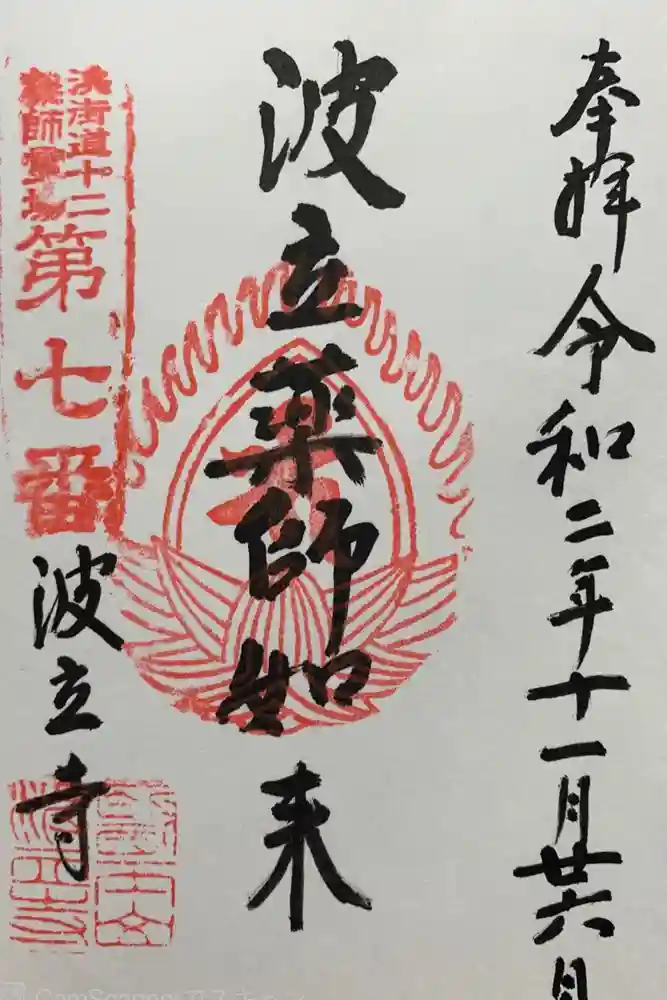 奉拝 令和二年十一月廿六日
波立薬師如来
浜街道十二
薬師霊場
第七番
波立寺